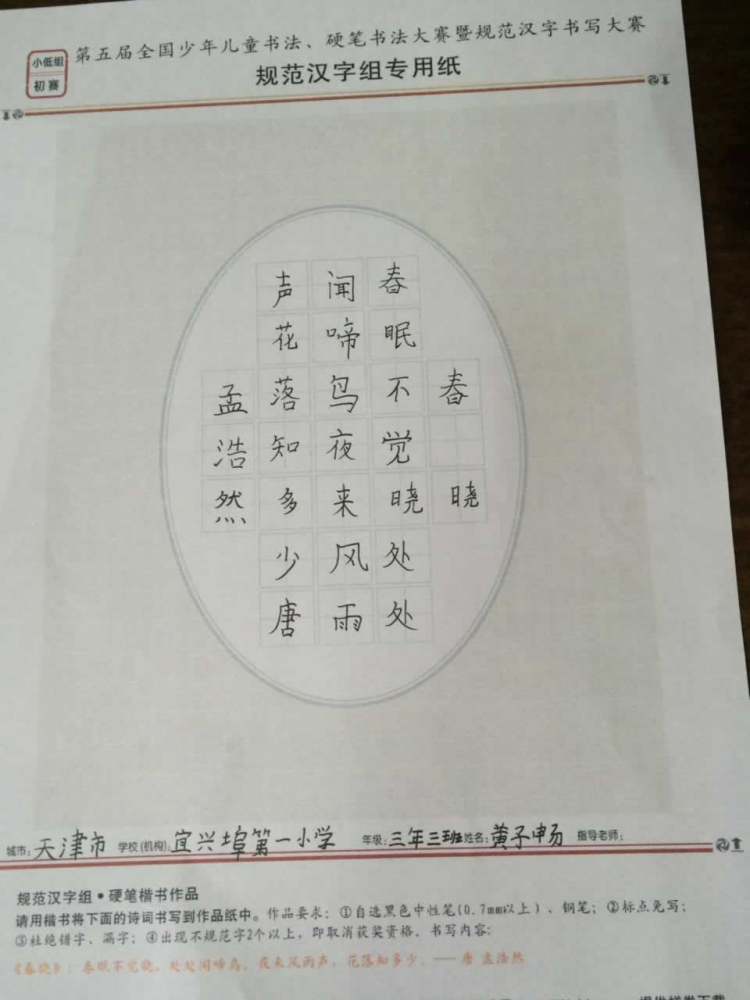 小低组
初赛
第五届全国少年儿童书法、硬笔书法大赛暨规范汉字书写大赛
规范汉字组专用纸
春晓
春眠不觉晓处处
闻啼鸟夜来风雨
声花落知多少唐
孟浩然
城市:天津市 学校(机构):宜兴埠第一小学 年级:三年三班 姓名:黄子畅 指导老师:
规范汉字组·硬笔楷书作品
请用楷书将下面的诗词书写到作品纸中。作品要求:①自选黑色中性笔(0.7mm以上)、钢笔;②标点免写;
③杜绝错字、漏字;④出现不规范字2个以上,即取消获奖资格。书写内容:
《春晓》:春眠不觉晓,处处闻啼鸟。夜来风雨声,花落知多少。——唐 孟浩然